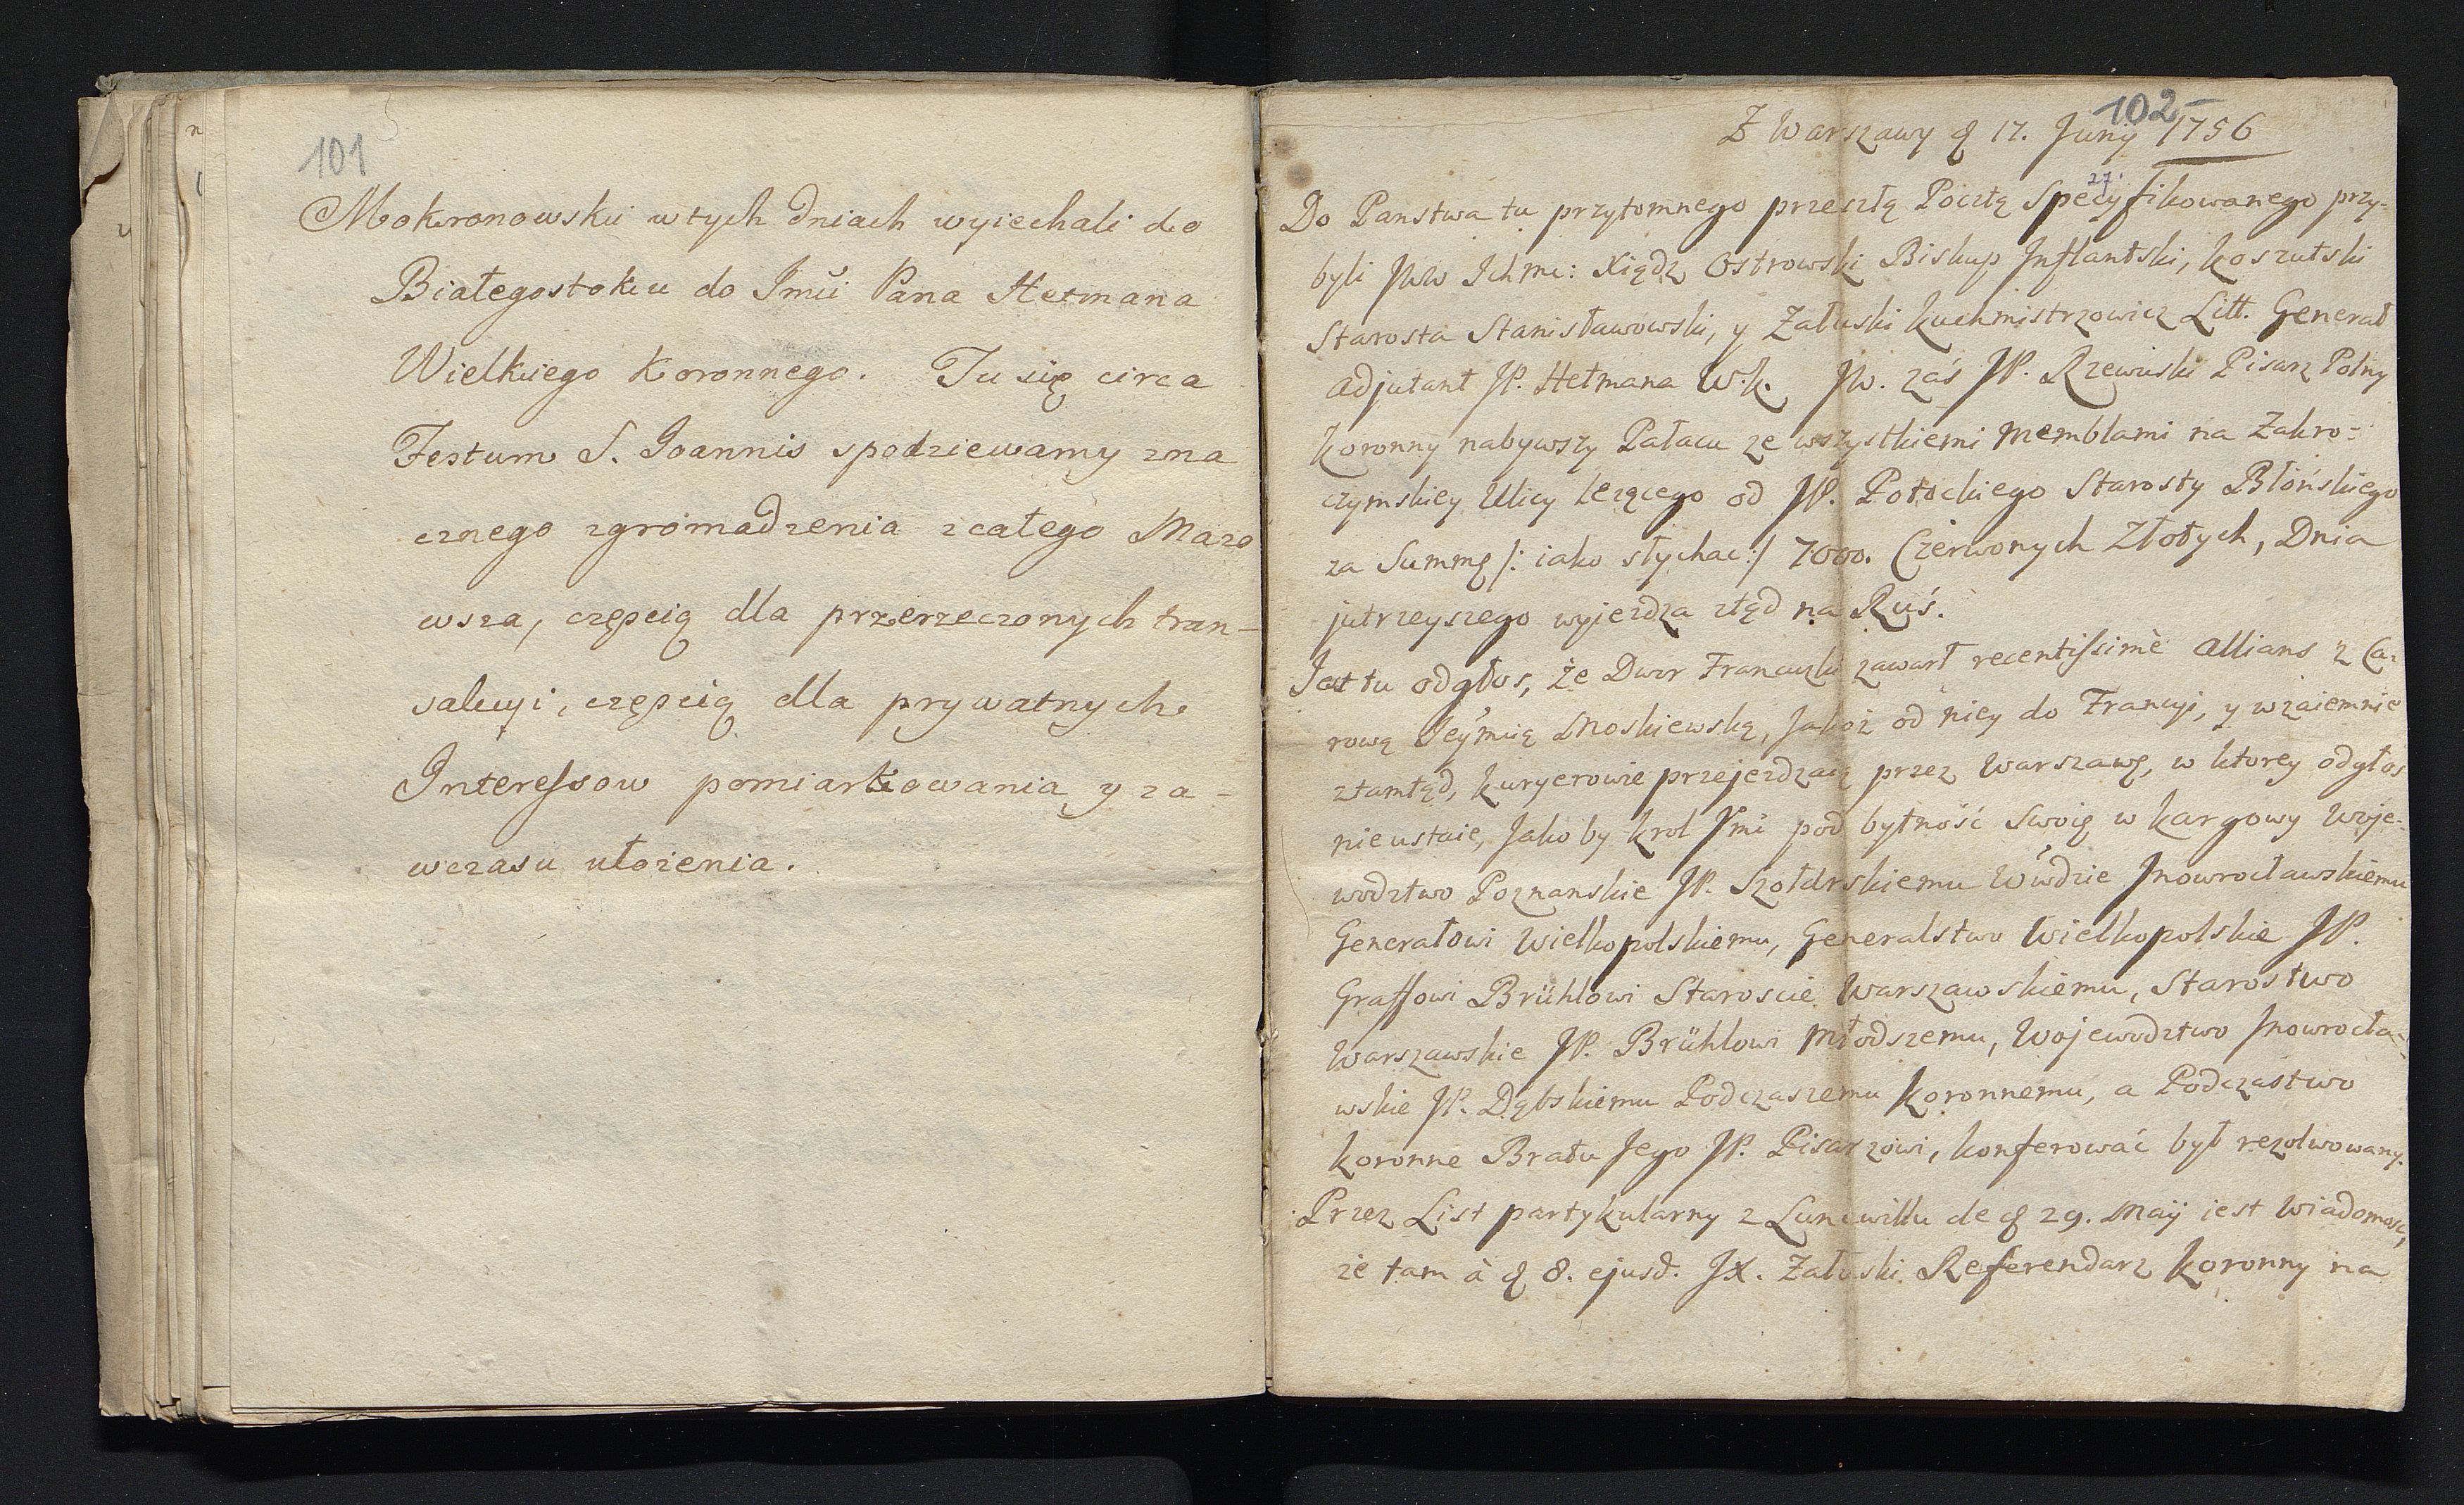 101
Mokronowski w tych dniach wyiechali do
Białegostoku do Jmći Pana Hetmana
Wielkiego Koronnego. Tu się circa
Festum S. Joannis spodziewamy zna
cznego zgromadzenia z całego Mazo
wsza, częscią dla przerzeczonych tran-
sakcyi, częscią dla prywatnych
Interessow pomiarkowania y za-
wczasu ułożenia.
102
Z Warszawy d 17. Junij 1756
27.
Do Panstwa tu przytomnego przeszłą Pocztą Specyfikowanego przy-
byli JWW Ichmc: Xiądz Ostrowski Biskup Inflantski, Koszutski
Starosta Stanisławowski, y Załuski Kuchmistrzowicz Litt. Generał
Adjutant JP. Hetmana W.K. JW. zaś JP. Rzewuski Pisarz Polny
Koronny nabywszy Pałacu ze wszystkiemi Memblami na Zakro-
czymskiey Ulicy leżącego od JP. Potockiego Starosty Błońskiego
za Summę /: iako słychac :/ 7000. Czerwonych Złotych, Dnia
jutrzeyszego wyjezdza ztąd na Ruś.
Jest tu odgłos, że Dwor Francuzki zawarł recentissimè Allians z Ca-
rową Jeymcią Moskiewską, Jakoż od niey do Francyi, y wzaiemnie
ztamtąd, Kuryerowie przejezdzaią przez Warszawę, w ktorey odgłos
nie ustaie, Jako by Krol Jmć pod bytność Swoią w Kargowy Woje-
wodztwo Poznanskie JP. Szołdrskiemu Wwdzie Jnowrocławskiemu
Generałowi Wielkopolskiemu, Generalstwo Wielkopolskie JP.
Graffowi Brühlowi Staroscie Warszawskiemu, Starostwo
Warszawskie JP. Brühlowi Młodszemu, Wojewodztwo Jnowrocła-
wskie JP. Dąbskiemu Podczaszemu Koronnemu, a Podczastwo
Koronne Bratu Jego JP. Pisarzowi, konferować był rezolwowany.
Przez List partykularny z Lunewillu de d 29. Maij iest Wiadomosc,
że tam à d 8. ejusd. JX. Załuski Referendarz Koronny na